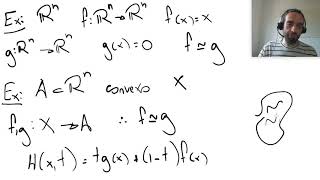 Ex: ℝⁿ f: ℝⁿ→ℝⁿ f(x)=x
g: ℝⁿ→ℝⁿ g(x)=0 f≃g
Ex: A⊂ℝⁿ convexo X
f,g: X→A ∴ f≃g
H(x,t)=tg(x)+(1-t)f(x)